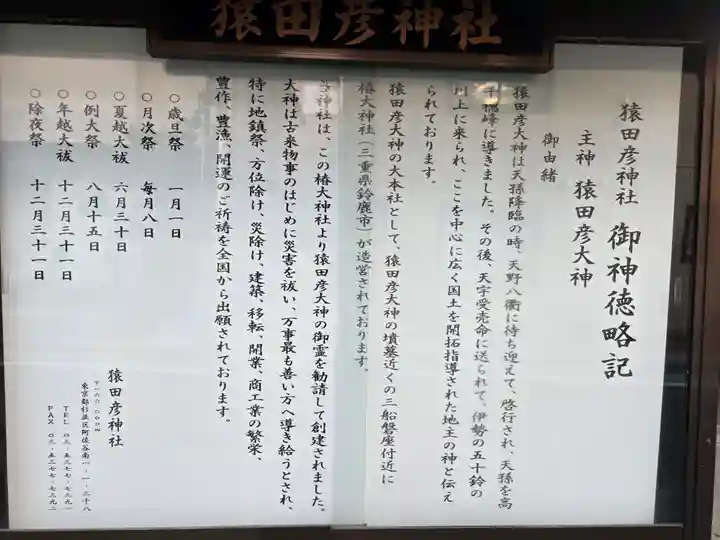 猿田彦神社
猿田彦神社 御神徳略記
主神 猿田彦大神
御由緒
猿田彦大神は天孫降臨の時、天野八衢に待ち迎えて、啓行され、天孫を高
千穂峰に導きました。その後、天宇受売命に送られて、伊勢の五十鈴の
川上に来られ、ここを中心に広く国土を開拓指導された地主の神と伝え
られております。
猿田彦大神の大本社として、猿田彦大神の墳墓近くの三船磐座付近に
椿大神社（三重県鈴鹿市）が造営されております。
当神社は、この椿大神社より猿田彦大神の御霊を勧請して創建されました。
大神は古来物事のはじめに災害を祓い、万事最も善い方へ導き給うとされ、
特に地鎮祭、方位除け、災除け、建築、移転、開業、商工業の繁栄、
豊作、豊漁、開運のご祈祷を全国から出願されております。
○歳旦祭 一月一日
○月次祭 毎月八日
○夏越大祓 六月三十日
○例大祭 八月十五日
○年越大祓 十二月三十一日
○除夜祭 十二月三十一日
猿田彦神社
〒一六六-〇〇〇四
東京都杉並区阿佐谷南一-一-三十八
TEL 〇三-五三七七-七三九一
FAX 〇三-五三七七-七三九二